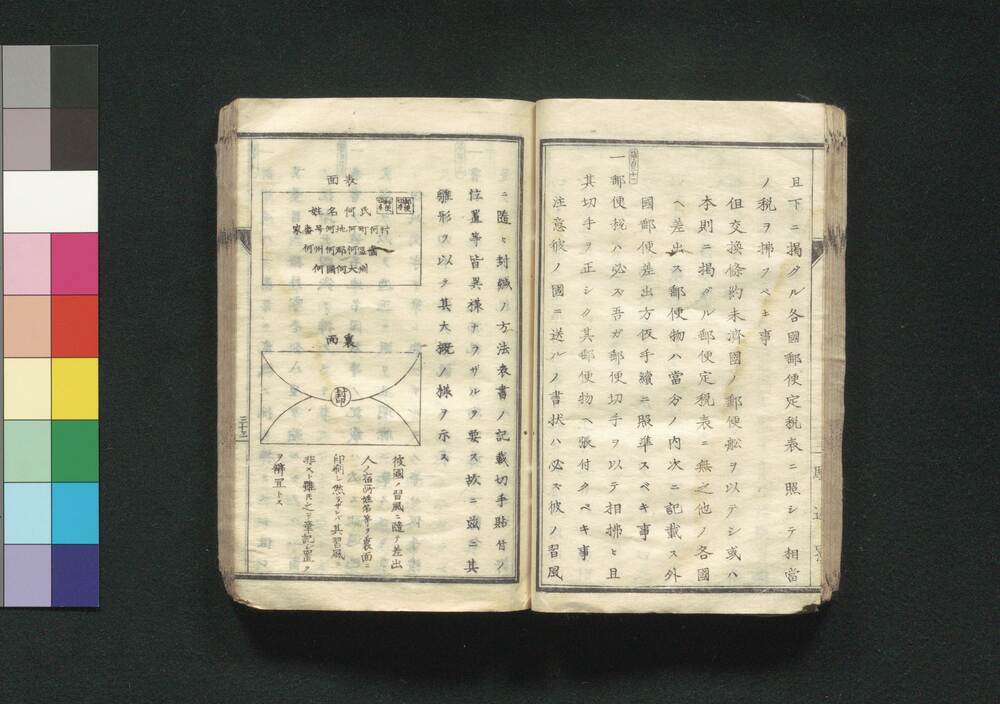 且下ニ掲クル各國郵便定税表ニ照シテ相當
ノ税ヲ拂フベキ事
但交換條約未濟國ノ郵便舩ヲ以テシ或ハ
本則ニ掲グル郵便定税表ニ無之他ノ各國
ヘ差出ス郵便物ハ當分ノ内次ニ記載ス外
國郵便差出方仮手續ニ照準スベキ事
一郵便税ハ必ズ吾ガ郵便切手ヲ以テ相拂ヒ且
其切手ヲ正シク其郵便物ヘ張付クベキ事
注意彼ノ國ニ送ルノ書状ハ必ズ彼ノ習風
ニ隨ヒ封緘ノ方法表書ノ記載切手貼付ノ
位置等皆異様ナラザルヲ要ス故ニ茲ニ其
雛形ヲ以テ其大概ノ様ヲ示ス
表面
郵便切手
郵便切手
何氏名姓
村何町何地何号番家
國何區何郡何州何
洲大何國何
裏面
封印
彼國ノ習風ニ隨テ差出
人ノ宿所姓名等ヲ裏面ニ
印刷シ然ラザレバ其習風ニ
非ズト雖モ之ヲ筆記シ置ク
ヲ便宜トス
三十二
驛逓寮